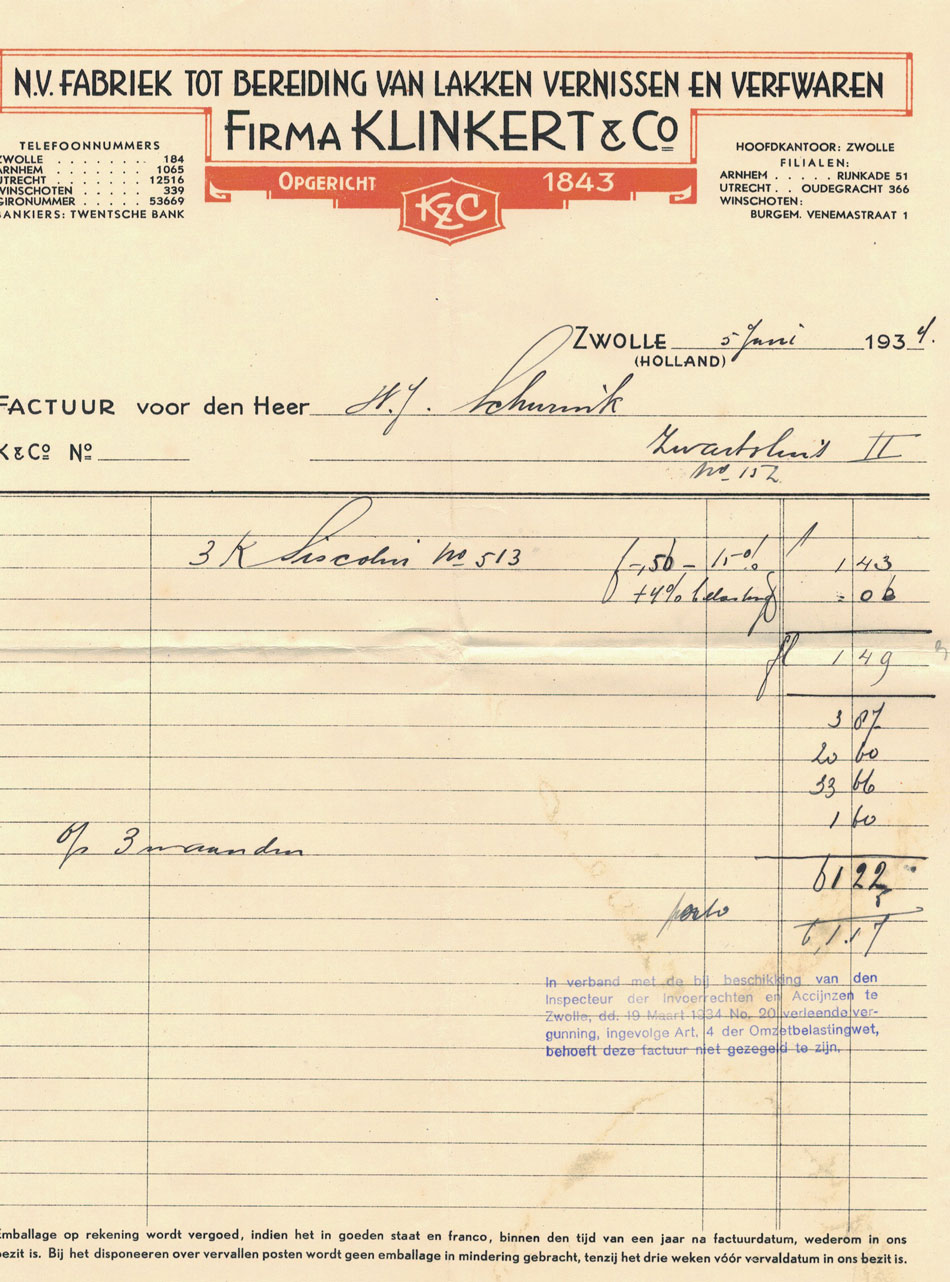 N.V. FABRIEK TOT BEREIDING VAN LAKKEN VERNISSEN EN VERFWAREN
FIRMA KLINKERT & Co
OPGERICHT 1843
K&C
TELEFOONNUMMERS
ZWOLLE . . . . . . . . 184
ARNHEM . . . . . . 1065
UTRECHT . . . . . 12516
WINSCHOTEN . . . . . 339
GIRONUMMER . . . . . 53669
BANKIERS: TWENTSCHE BANK
HOOFDKANTOOR: ZWOLLE
FILIALEN:
ARNHEM . . . . . RIJNKADE 51
UTRECHT . . OUDEGRACHT 366
WINSCHOTEN:
BURGEM. VENEMASTRAAT 1
ZWOLLE 5 Juni 1934.
(HOLLAND)
FACTUUR voor den Heer H.J. Schurink
K&Co No
Zwartsluis II
No 152
3 K No 513 f -,56 - 15% 1 43
+4% belasting - 06
fl 1 49
3 87
20 60
33 66
1 60
op 3 maanden
61 22
5
porto 61.17
In verband met de bij beschikking van den
Inspecteur der Invoerrechten en Accijnzen te
Zwolle, dd. 19 Maart 1934 No. 20 verleende ver-
gunning, ingevolge Art. 4 der Omzetbelastingwet,
behoeft deze factuur niet gezegeld te zijn.
Emballage op rekening wordt vergoed, indien het in goeden staat en franco, binnen den tijd van een jaar na factuurdatum, wederom in ons
bezit is. Bij het disponeeren over vervallen posten wordt geen emballage in mindering gebracht, tenzij het drie weken vóór vervaldatum in ons bezit is.